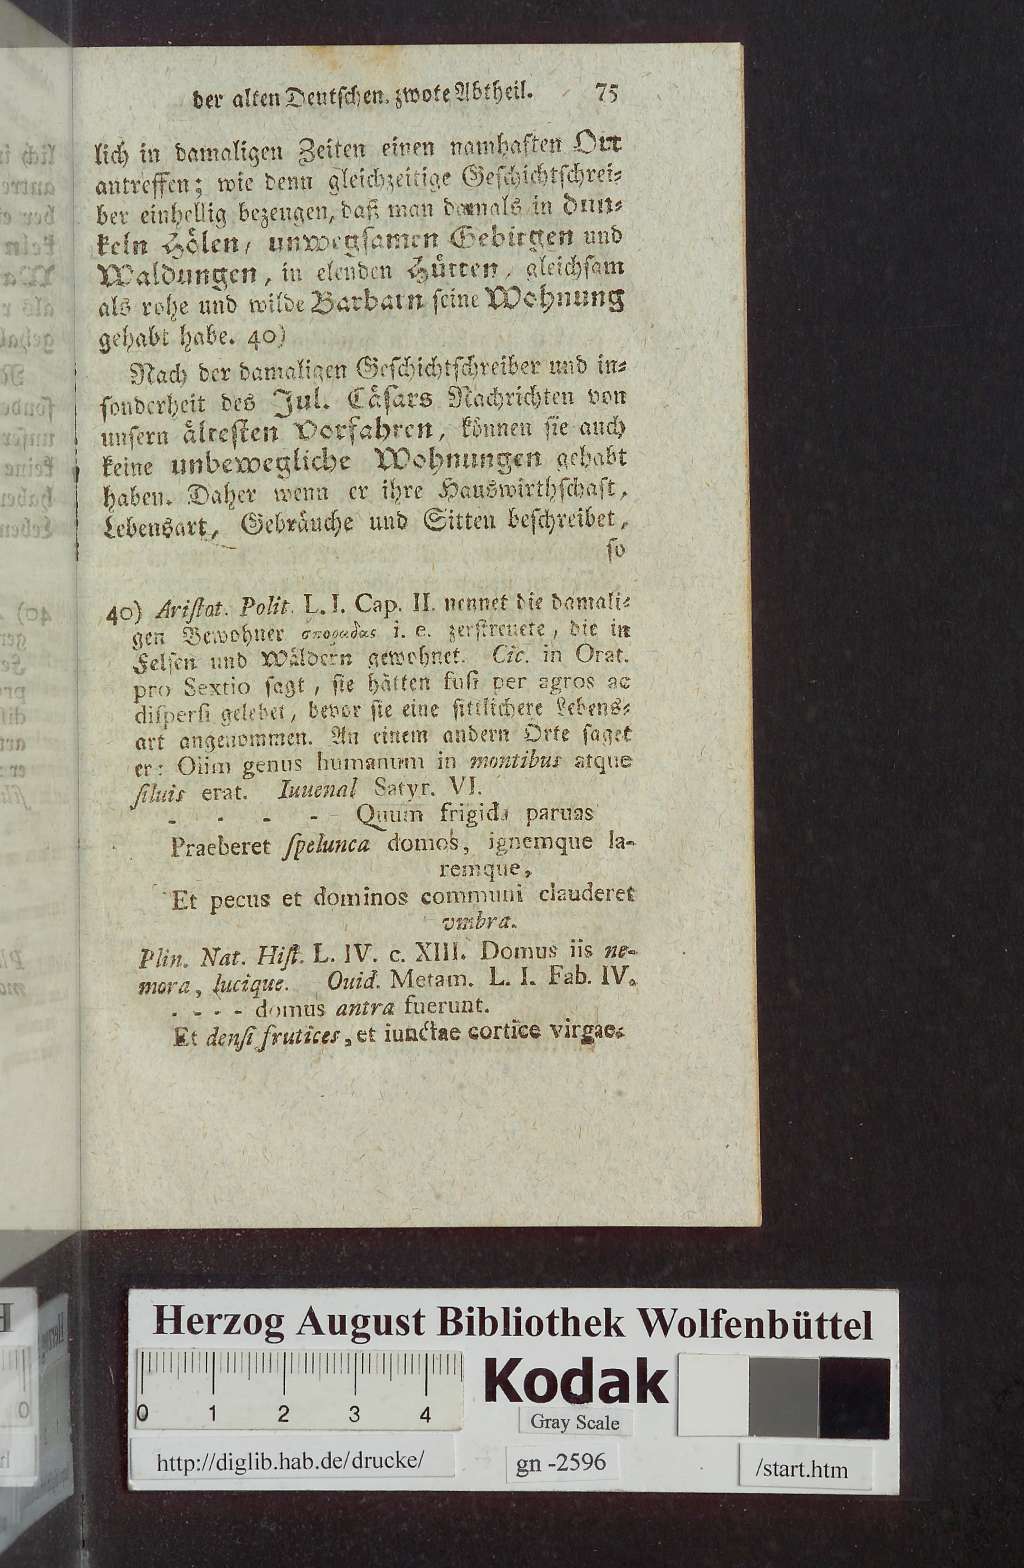 der alten Deutschen. zwote Abtheil. 75
lich in damaligen Zeiten einen namhaften Ort
antreffen; wie denn gleichzeitige Geschichtschrei⸗
ber einhellig bezeugen, daß man damals in dun⸗
keln Hölen, unwegsamen Gebirgen und
Waldungen, in elenden Hütten, gleichsam
als rohe und wilde Barbarn seine Wohnung
gehabt habe. 40)
Nach der damaligen Geschichtschreiber und in⸗
sonderheit des Jul. Cäsars Nachrichten von
unsern ältesten Vorfahren, können sie auch
keine unbewegliche Wohnungen gehabt
haben. Daher wenn er ihre Hauswirthschaft,
Lebensart, Gebräuche und Sitten beschreibet,
so
40) Aristot. Polit. L. I. Cap. II. nennet die damali⸗
gen Bewohner σποραδας i. e. zerstreuete, die in
Felsen und Wäldern gewohnet. Cic. in Orat.
pro Sextio sagt, sie hätten fusi per agros ac
dispersi gelebet, bevor sie eine sittlichere Lebens⸗
art angenommen. An einem andern Orte saget
er: Olim genus humanum in montibus atque
siluis erat. Iuuenal Satyr. VI.
- - - - Quum frigida paruas
Praeberet spelunca domos, ignemque la-
remque,
Et pecus et dominos communi clauderet
vmbra.
Plin. Nat. Hist. L. IV. c. XIII. Domus iis ne-
mora, lucique. Ouid. Metam. L. I. Fab. IV.
- - - - domus antra fuerunt.
Et densi frutices, et iunctae cortice virgae.
Herzog August Bibliothek Wolfenbüttel
Kodak
Gray Scale
0 1 2 3 4
http://diglib.hab.de/drucke/ gn -2596 /start.htm